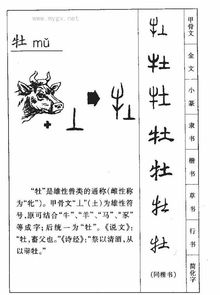 www.mygx.net
牡 mǔ
甲骨文
金文
小篆
隶书
楷书
草书
行书
简化字
牡
牡
牡
牡
牡
牡
牡
(同楷书)
“牡”是雄性兽类的通称(雌性称
为“牝”)。甲骨文“⊥”(土)为雄性符
号,原可结合“牛”、“羊”、“马”、“豕”
等成字;后统一为“牡”。《说文》:
“牡,畜父也。”《诗经》:“祭以清酒,从
以骍牡。”